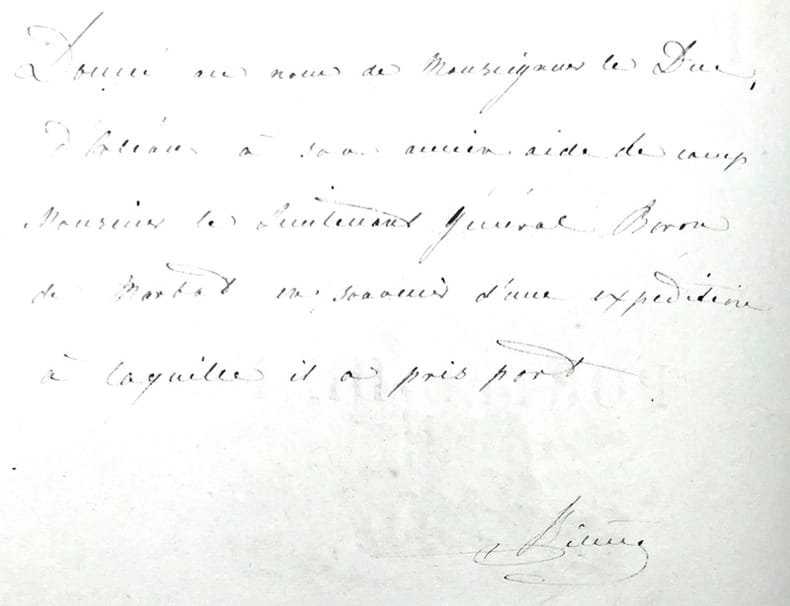 Donné au nom de Monseigneur le Duc
d'Orléans à son ancien aide de camp
Monsieur le Lieutenant Général Baron
de Marbot en souvenir d'une expedition
à laquelle il a pris part